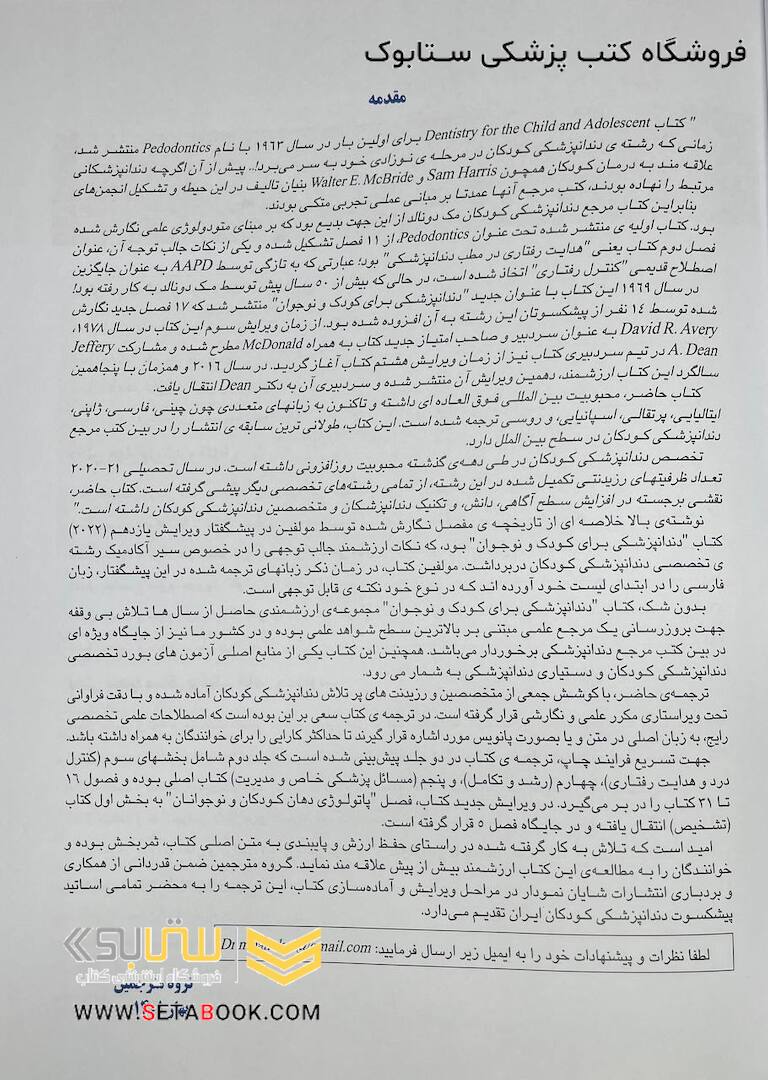 فروشگاه کتب پزشکی ستابوک
مقدمه
" کتاب Dentistry for the Child and Adolescent برای اولین بار در سال ۱۹۶۳ با نام Pedodontics منتشر شد،
زمانی که رشته ی دندانپزشکی کودکان در مرحله ی نوزادی خود به سر می‌برد!.. پیش از آن اگرچه دندانپزشکانی
علاقه مند به درمان کودکان همچون Sam Harris و Walter E. McBride بنیان تالیف در این حیطه و تشکیل انجمن‌های
مرتبط را نهاده بودند، کتب مرجع آنها عمدتا بر مبانی عملی تجربی متکی بودند.
بنابراین کتاب مرجع دندانپزشکی کودکان مک دونالد از این جهت بدیع بود که بر مبنای متودولوژی علمی نگارش شده
بود. کتاب اولیه ی منتشر شده تحت عنوان Pedodontics، از ۱۱ فصل تشکیل شده و یکی از نکات جالب توجه آن، عنوان
فصل دوم کتاب یعنی "هدایت رفتاری در مطب دندانپزشکی" بود؛ عبارتی که به تازگی توسط AAPD به عنوان جایگزین
اصطلاح قدیمی "کنترل رفتاری" اتخاذ شده است، در حالی که بیش از ۵۰ سال پیش توسط مک دونالد به کار رفته بود!
در سال ۱۹۶۹ این کتاب با عنوان جدید "دندانپزشکی برای کودک و نوجوان" منتشر شد که ۱۷ فصل جدید نگارش
شده توسط ۱۴ نفر از پیشکسوتان این رشته به آن افزوده شده بود. از زمان ویرایش سوم این کتاب در سال ۱۹۷۸،
David R. Avery به عنوان سردبیر و صاحب امتیاز جدید کتاب به همراه McDonald مطرح شده و مشارکت Jeffery
A. Dean در تیم سردبیری کتاب نیز از زمان ویرایش هشتم کتاب آغاز گردید. در سال ۲۰۱۶ و همزمان با پنجاهمین
سالگرد این کتاب ارزشمند، دهمین ویرایش آن منتشر شده و سردبیری آن به دکتر Dean انتقال یافت.
کتاب حاضر، محبوبیت بین المللی فوق العاده ای داشته و تاکنون به زبانهای متعددی چون چینی، فارسی، ژاپنی،
ایتالیایی، پرتقالی، اسپانیایی، و روسی ترجمه شده است. این کتاب، طولانی ترین سابقه ی انتشار را در بین کتب مرجع
دندانپزشکی کودکان در سطح بین الملل دارد.
تخصص دندانپزشکی کودکان در طی دهه‌ی گذشته محبوبیت روزافزونی داشته است. در سال تحصیلی ۲۱-۲۰۲۰
تعداد ظرفیتهای رزیدنتی تکمیل شده در این رشته، از تمامی رشته‌های تخصصی دیگر پیشی گرفته است. کتاب حاضر،
نقشی برجسته در افزایش سطح آگاهی، دانش، و تکنیک دندانپزشکان و متخصصین دندانپزشکی کودکان داشته است."
نوشته‌ی بالا خلاصه ای از تاریخچه ی مفصل نگارش شده توسط مولفین در پیشگفتار ویرایش یازدهم (۲۰۲۲)
کتاب "دندانپزشکی برای کودک و نوجوان" بود، که نکات ارزشمند جالب توجهی را در خصوص سیر آکادمیک رشته
ی تخصصی دندانپزشکی کودکان دربرداشت. مولفین کتاب، در زمان ذکر زبانهای ترجمه شده در این پیشگفتار، زبان
فارسی را در ابتدای لیست خود آورده اند که در نوع خود نکته ی قابل توجهی است.
بدون شک، کتاب "دندانپزشکی برای کودک و نوجوان" مجموعه‌ی ارزشمندی حاصل از سال ها تلاش بی وقفه
جهت بروزرسانی یک مرجع علمی مبتنی بر بالاترین سطح شواهد علمی بوده و در کشور ما نیز از جایگاه ویژه ای
در بین کتب مرجع دندانپزشکی برخوردار می‌باشد. همچنین این کتاب یکی از منابع اصلی آزمون های بورد تخصصی
دندانپزشکی کودکان و دستیاری دندانپزشکی به شمار می رود.
ترجمه‌ی حاضر، با کوشش جمعی از متخصصین و رزیدنت های پر تلاش دندانپزشکی کودکان آماده شده و با دقت فراوانی
تحت ویراستاری مکرر علمی و نگارشی قرار گرفته است. در ترجمه ی کتاب سعی بر این بوده است که اصطلاحات علمی تخصصی
رایج، به زبان اصلی در متن و یا بصورت پانویس مورد اشاره قرار گیرند تا حداکثر کارایی را برای خوانندگان به همراه داشته باشد.
جهت تسریع فرایند چاپ، ترجمه ی کتاب در دو جلد پیش‌بینی شده است که جلد دوم شامل بخشهای سوم (کنترل
درد و هدایت رفتاری)، چهارم (رشد و تکامل)، و پنجم (مسائل پزشکی خاص و مدیریت) کتاب اصلی بوده و فصول ۱۶
تا ۳۱ کتاب را در بر می‌گیرد. در ویرایش جدید کتاب، فصل "پاتولوژی دهان کودکان و نوجوانان" به بخش اول کتاب
(تشخیص) انتقال یافته و در جایگاه فصل ۵ قرار گرفته است.
امید است که تلاش به کار گرفته شده در راستای حفظ ارزش و پایبندی به متن اصلی کتاب، ثمربخش بوده و
خوانندگان را به مطالعه‌ی این کتاب ارزشمند بیش از پیش علاقه مند نماید. گروه مترجمین ضمن قدردانی از همکاری
و بردباری انتشارات شایان نمودار در مراحل ویرایش و آماده‌سازی کتاب، این ترجمه را به محضر تمامی اساتید
پیشکسوت دندانپزشکی کودکان ایران تقدیم می‌دارد.
لطفا نظرات و پیشنهادات خود را به ایمیل زیر ارسال فرمایید:
ستابوک
فروشگاه اینترنتی کتاب
گروه مترجمین
WWW.SETABOOK.COM